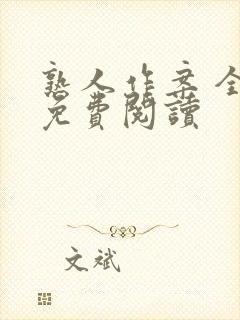 熟人作案全
免費閱讀
文斌